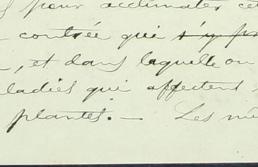 pour acclimater cet
contrée qui s'y
, et dans laquelle on
ladies qui affectent
plantes. — Les